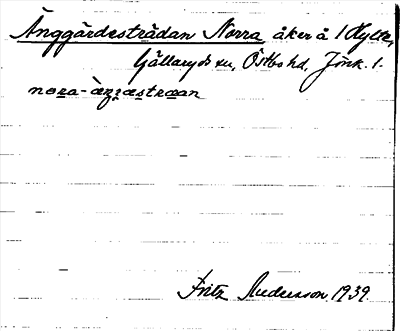 Änggärdesträdan Norra åker å 1 Hyltan,
Gällaryds sn, Östbo hd, Jönk. l.
nora-äŋɟæstræan
Fritz Andersson 1939.